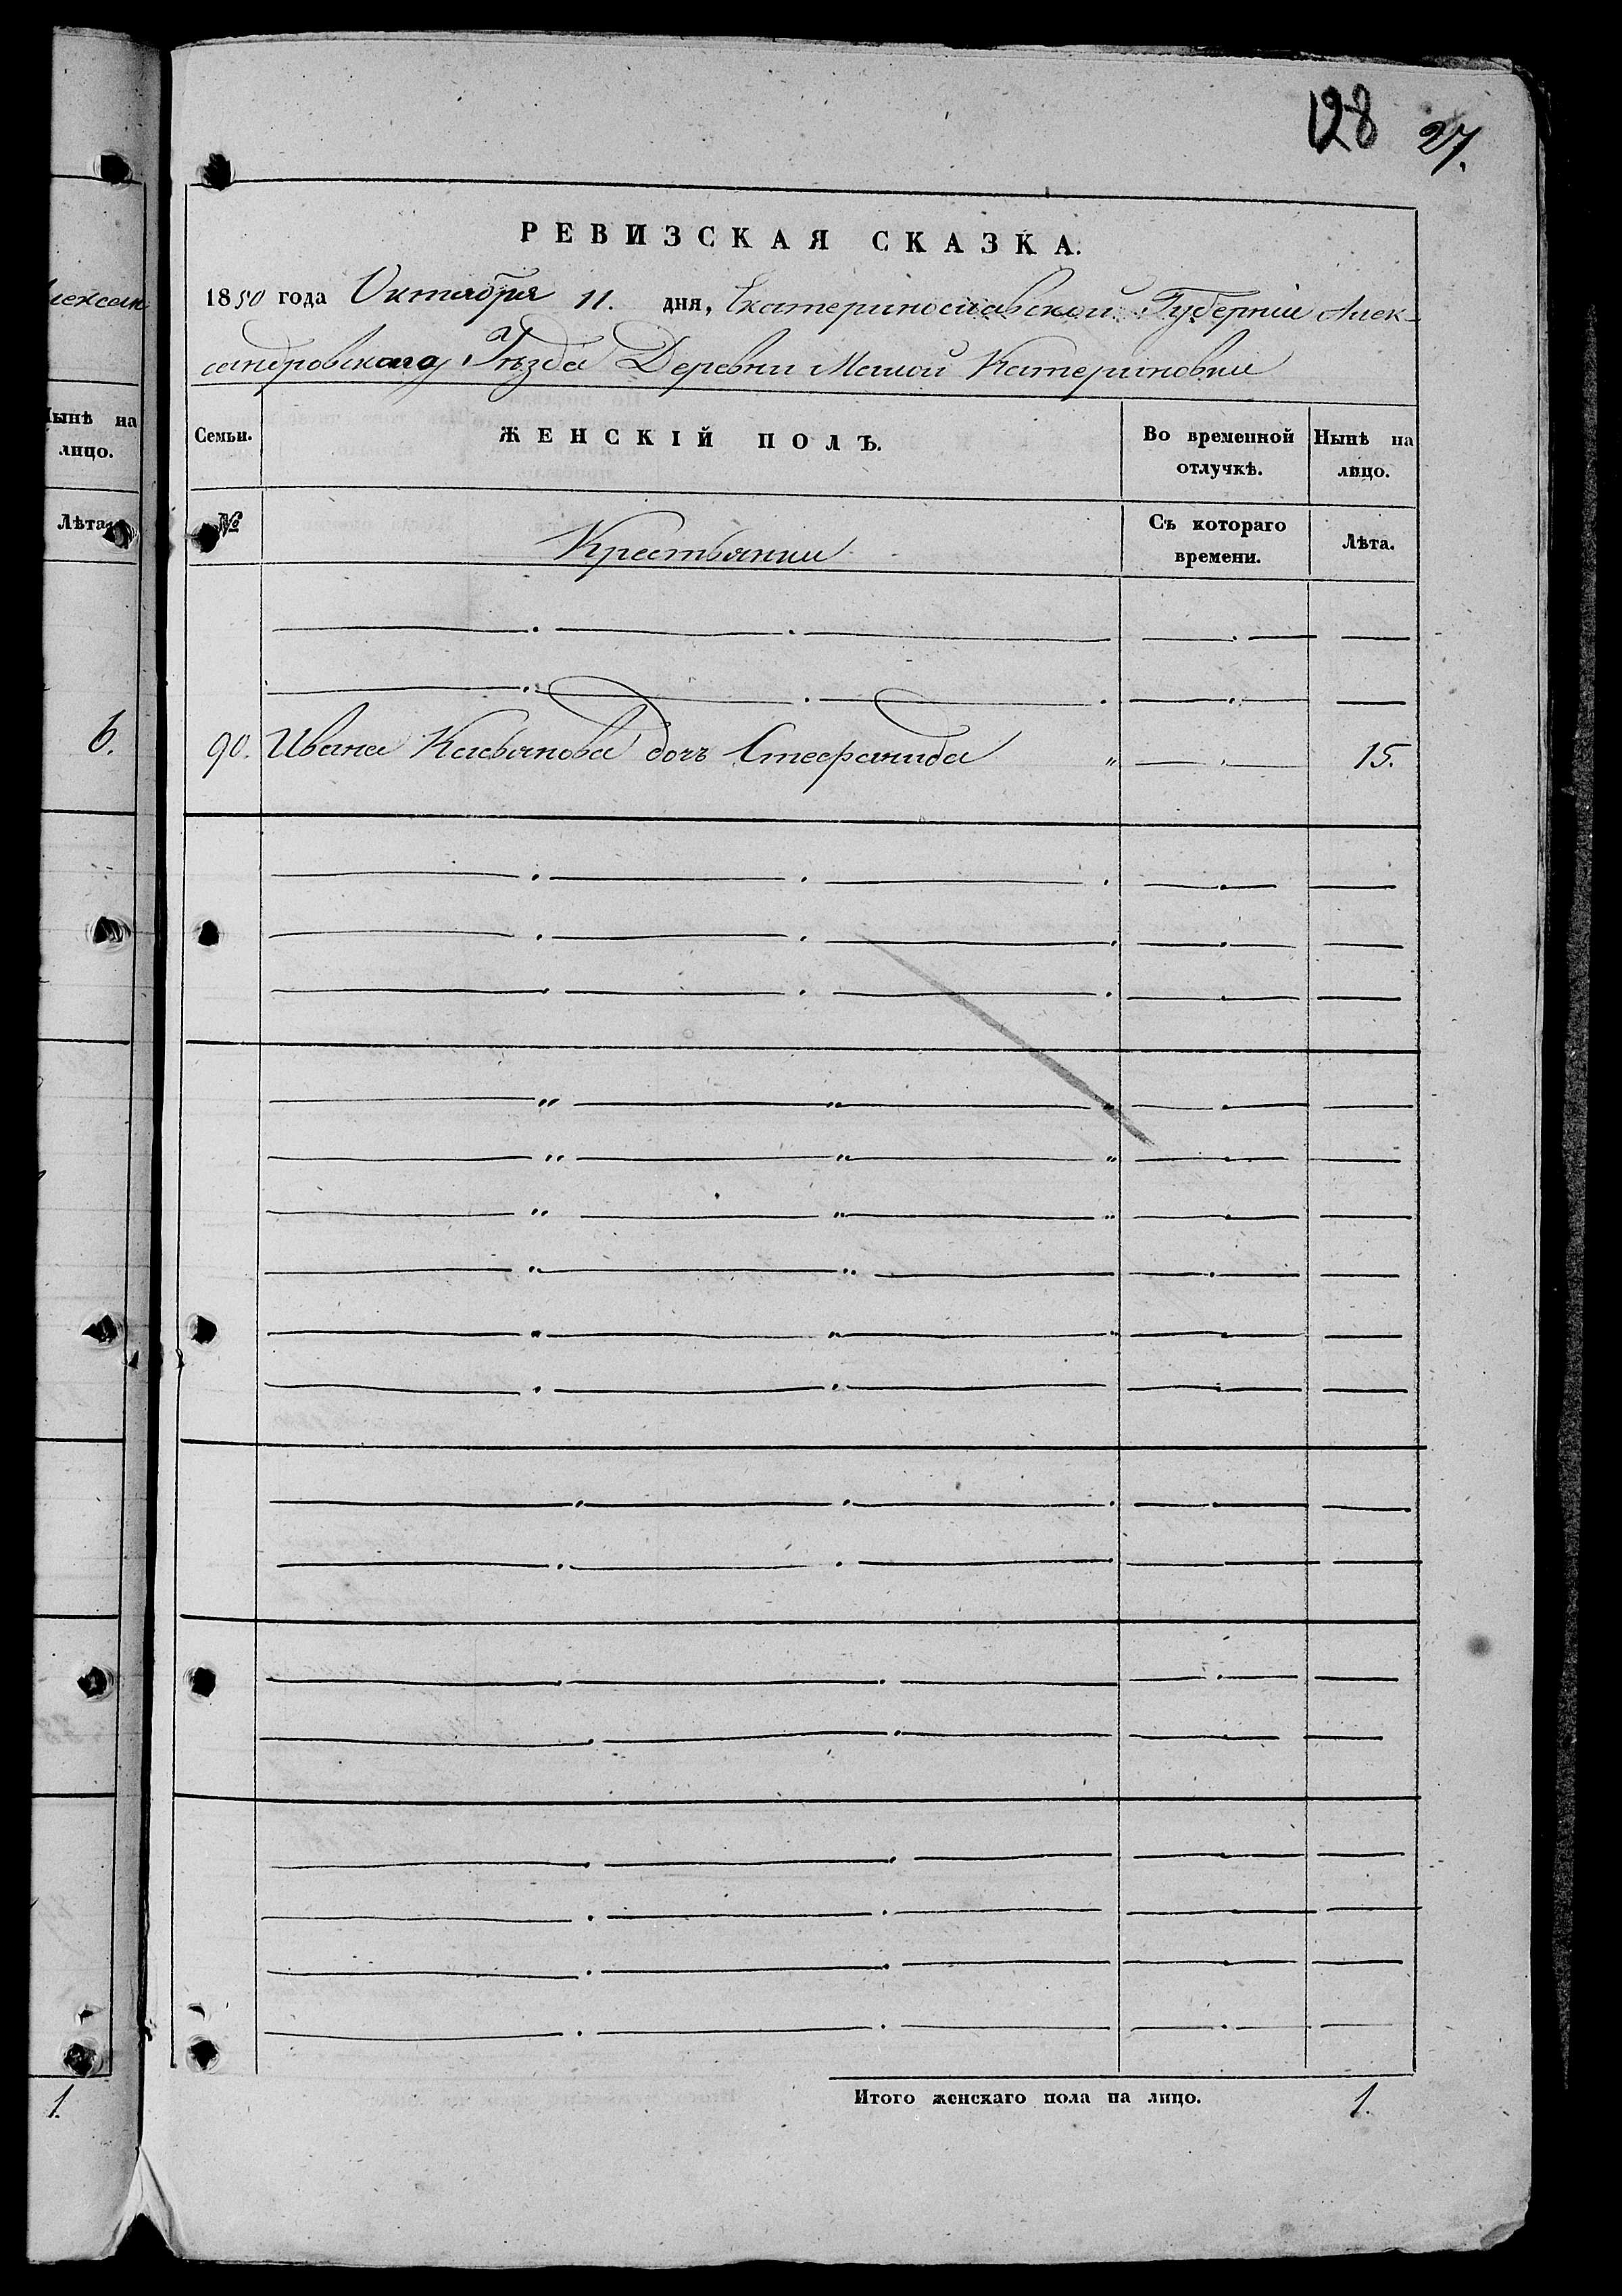 128 27.
РЕВИЗСКАЯ СКАЗКА.
1850 года Октября 11. дня, Екатеринославской Губерніи Алек-
сандровскаго Уѣзда Деревни Малой Катериновки
Семьи. ЖЕНСКІЙ ПОЛЪ. Во временной отлучкѣ. Нынѣ на лицо.
№ Крестьянии Съ котораго времени. Лѣта.
90. Ивана дочь Стефанида " 15.
Итого женскаго пола на лицо. 1.
лексан
Нынѣ на
лицо.
Лѣта.
6.
1.